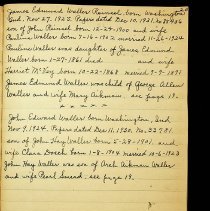 James Edmund Waller Reinsch born Washington
Ind. Nov. 27, 1922. Papers dated Dec. 10, 1921. No 38486
son of John Reinsch born 12-29-1900 and wife
Pauline Waller born 7-16-1902 married 11-26-1924
Pauline Waller was daughter of James Edmund
Waller born 1-27-1861 died and wife
Harriet McFay born 10-22-1868 married 9-9-1891
James Edmund Waller was child of George Allen
Waller and wife Mary Aikman. see page 19.
* * * * *
John Edward Waller born Washington, Ind
Nov. 9, 1924. Papers dated Dec. 11, 1920. No. 38781.
son of John Hay Waller born 5-29-1901. and
wife Clara Dosch born 1-8-1904 married 10-6-1923
John Hay Waller was son of Arch Aikman Waller
and wife Pearl Snead. see page 19.